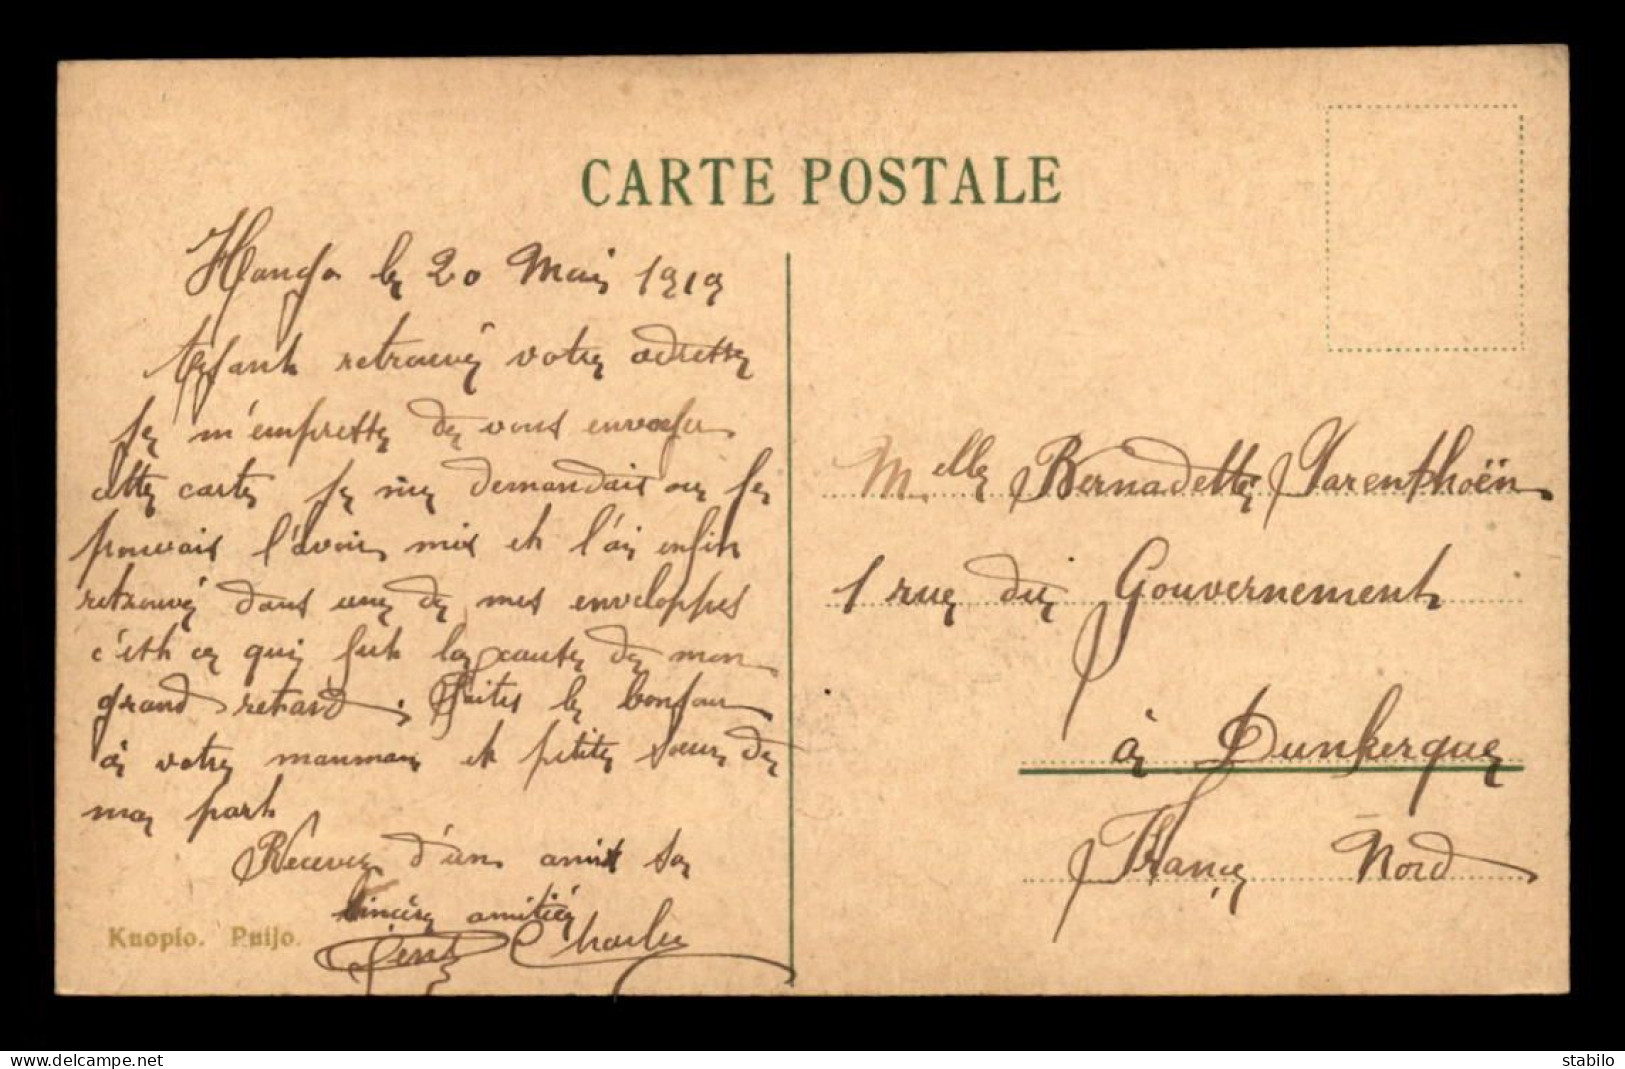 CARTE POSTALE
Hango le 20 Mai 1919
Ayant retrouvé votre adresse
je m'empresse de vous envoyer
cette carte je me demandais ou je
pouvais l'avoir mis et l'ai enfin
retrouvé dans une de mes enveloppes
c'est ce qui fut la cause de mon
grand retard. Faites le bonjour
à votre maman et petite soeur de
ma part
Recevez d'un ami sa
sincère amitié
Charles
Kuopio. Puijo.
Melle Bernadette Parenthoën
1 rue du Gouvernement
à Dunkerque
France Nord
stabilo